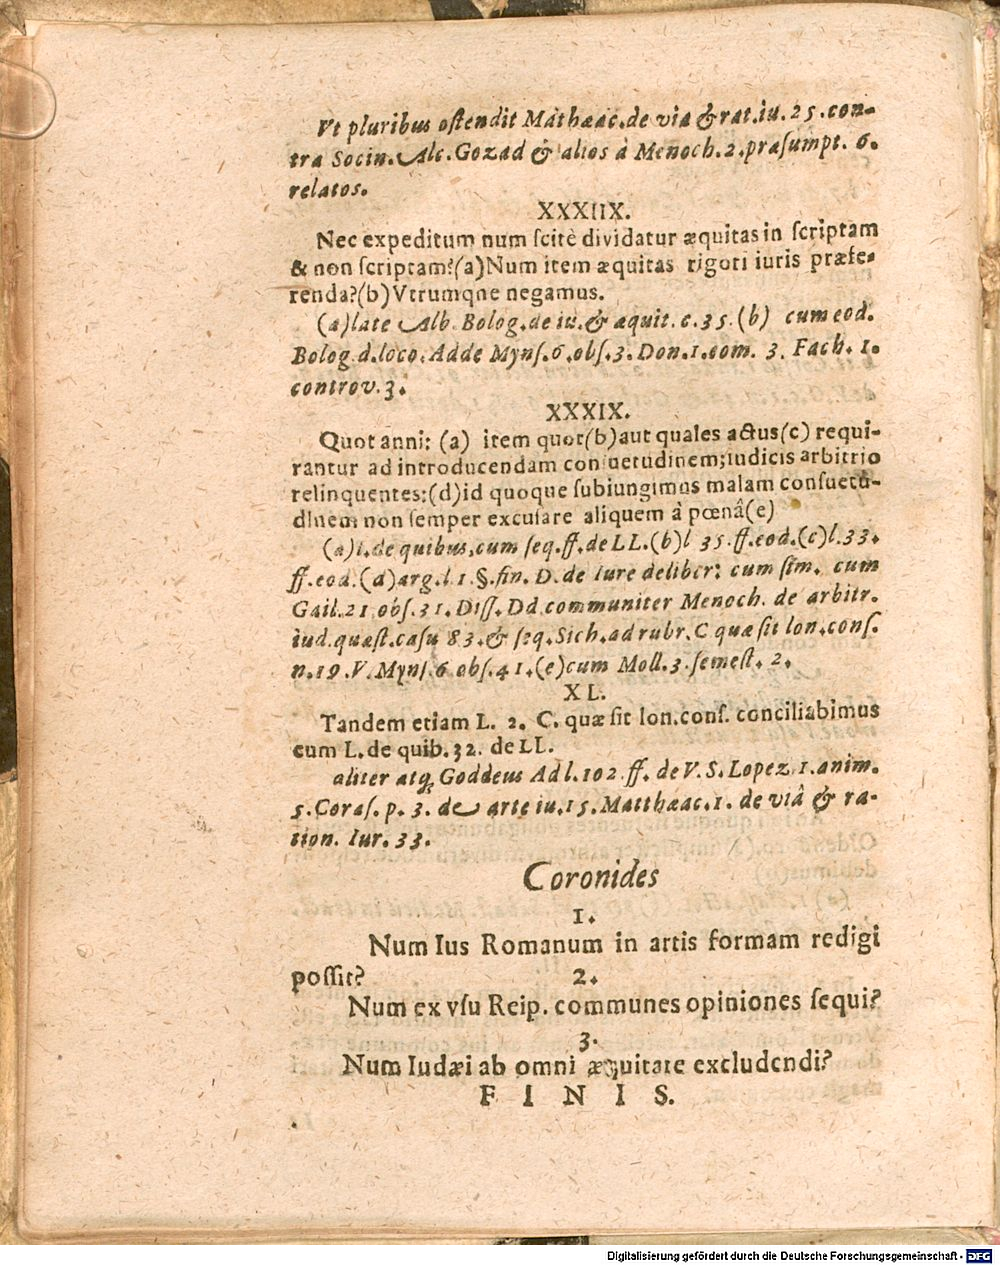 Vt pluribus oſtendit Mathæac.de via & rat.iu. 25.con-
tra Socin. Alc.Gozad & alios à Menoch.2.præſumpt. 6.
relatos.
XXXIIX.
Nec expeditum num ſcitè dividatur æquitas in ſcriptam
& non ſcriptam?(a)Num item æquitas rigori iuris præfe-
renda?(b)Vtrumqne negamus.
(a)late Alb. Bolog.de iu.& æquit.c.35.(b) cum eod.
Bolog.d.loco.Adde Mynſ.6.obſ.3.Don.1.com. 3. Fach. 1.
controv.3.
XXXIX.
Quot anni: (a) item quot(b)aut quales actus(c) requi-
rantur ad introducendam conſuetudinem;iudicis arbitrio
relinquentes:(d)id quoque ſubiungimus malam conſuetu-
dinem non ſemper excuſare aliquem à pœnâ(e)
(a)l.de quibus.cum ſeq.ff.de LL.(b)l 35.ff.eod.(c)l.33.
ff.eod.(d)arg.l 1.§.fin. D.de iure deliber: cum ſim. cum
Gail.21 obſ.31.Diſſ.Dd.communiter Menoch. de arbitr.
iud.quæſt.caſu 83.& ſeq.Sich.ad rubr.C quæ ſit lon.conſ.
n.19.V.Mynſ.6 obſ.41.(e)cum Moll.3.ſemeſt. 2.
XL.
Tandem etiam L. 2. C. quæ ſit lon.conſ. conciliabimus
cum L.de quib.32. de LL.
aliter atq; Goddeus Ad l.102.ff. de V. S. Lopez.1.anim.
5.Coraſ.p. 3. de arte iu.15.Matthæac.1. de viâ & ra-
tion. Iur. 33.
Coronides
1.
Num Ius Romanum in artis formam redigi
poſſit?
2.
Num ex vſu Reip. communes opiniones ſequi?
3.
Num Iudæi ab omni æquitate excludendi?
F I N I S.
Digitalisierung gefördert durch die Deutsche Forschungsgemeinschaft - DFG